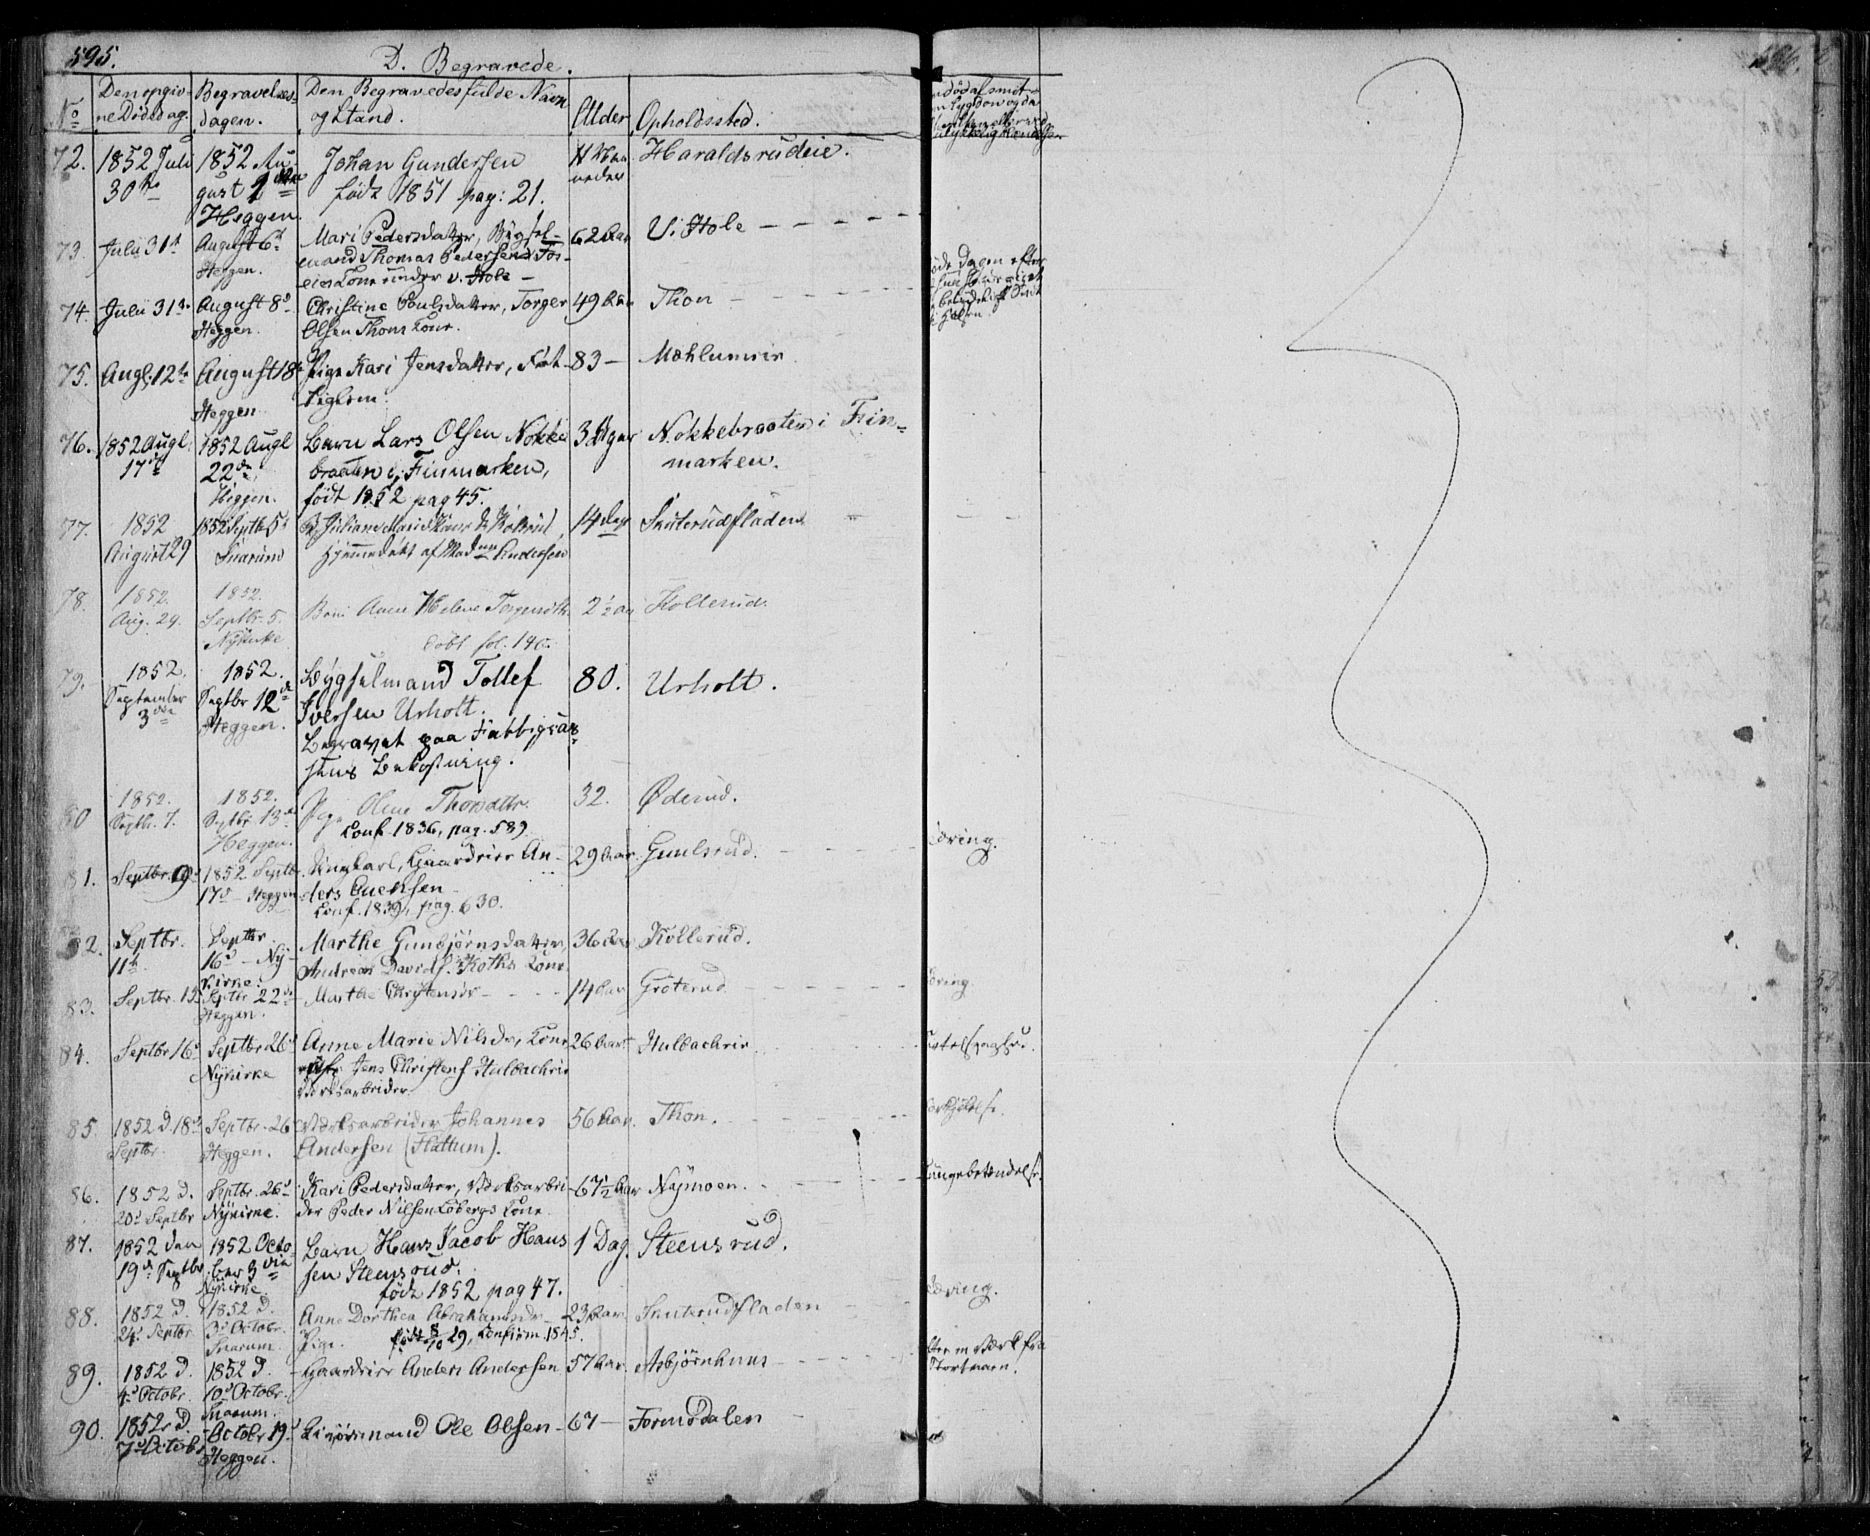 595.
D. Begravede.
No
Den opgiv-
ne Dödsdag.
Begravelses-
dagen.
Den Begravedes fulde Navn
og Stand.
Alder
Opholdssted.
72. 1852 Juli 30te
1852 Au-
gust
Heggen.
Johan Gundersen
født 1851 pag: 21.
Haraldsrudeie.
73. Julii 31t
August 6t
Heggen.
Mari Pedersdatter, Bygsel-
mand Thomas Pedersens
Kone under v. Hole
62 Aar
V. Hole
74. Julii 31t
August 8d
Heggen.
Christine Poulsdatter, Torger
Olsen Thons Kone.
49 Aar
Thon
75. Augl. 12te
August 18
Heggen
Pige Kari Jensdatter, Fat-
tiglem
83
Mæhlumeie
76. 1852 Augl. 17de
1852 Augl 22de
Heggen.
Barn Lars Olsen Nokke-
braaten i Finmarken,
født 1852 pag 45.
3 Uger
Nokkebraaten i Fin-
marken.
77. 1852
August 29
1852 Septbr 5t
Snarum
Hjemmedøbt af Madme Andersen
14 Dage
Skuterudfladen
78. 1852.
Aug. 29.
1852.
Septbr. 5.
Nykirke
Barn Anne Helene
døbt fol. 140.
2½ Aar
Kollerud.
79. 1852.
September
3die
1852.
Septbr 12te
Heggen.
Bygselmand Tollef
Iversen Urholt.
Begravet paa Fattigcas-
sens Bekostning.
80.
Urholt.
80 1852.
Septbr. 7.
1852.
Septbr. 13de
Heggen.
Pige Oline Thorsdttr.
Conf. 1836, pag. 589
32.
Øderud.
81. Septbr. 9d
1852 Septbr.
17d Heggen
Ungkarl, Gaardeier An-
ders
Conf. 1839, pag. 630.
29 Aar.
Gunlsrud.
Tæring.
82. Septbr.
11te
Septbr
16d Ny-
kirke.
Marthe Gunbjørnsdatter,
Andreas Davids. Koths Kone
36 Aar
Kollerud.
83. Septbr. 15
Septbr 22de
Heggen.
Marthe Christensdr
14 Aar
Grøterud
Tæring
84. Septbr 16d
Septbr 26d
Nykirke
Anne Marie Nilsdr, Kone
Jens Christens. Hulbackeie
Værksarbeider
26 Aar
Hulbackeie
85. 1852 d. 18d
Septbr.
Septbr. 26
Heggen.
Værksarbeider Johannes
Andersen (Flattum).
56 Aar.
Thon.
Forkjølelse.
86. 1852 d.
20d Septbr
Septbr. 26d
Nykirke.
Kari Pedersdatter, Værksarbei-
der Peder Nilsen Løbergs Kone
67½ Aar
Nymoen.
Lungebetændelse.
87. 1852 den
19d Septbr
1852 Octo-
ber 3die
Nykirke
Barn Hans Jacob Hans-
sen Steensrud.
født 1852 pag 47.
1 Dag.
Steensrud.
88. 1852 d.
24d Septbr
1852 d.
3d Octobr.
Snarum.
Anne Dorthea Abrahamsdr
Pige. født 8/10 29, confirm. 1845.
23 Aar.
Skuterudfladen
Tæring.
89. 1852 d.
4d Octobr
1852 d.
10d Octobr.
Snarum.
Gaardeier Anders Andersen
57 Aar.
Asbjørnhuus
90. 1852 d.
7d Octobr
Octobr 19d
Heggen.
Ole Olsen
67
Formodalen